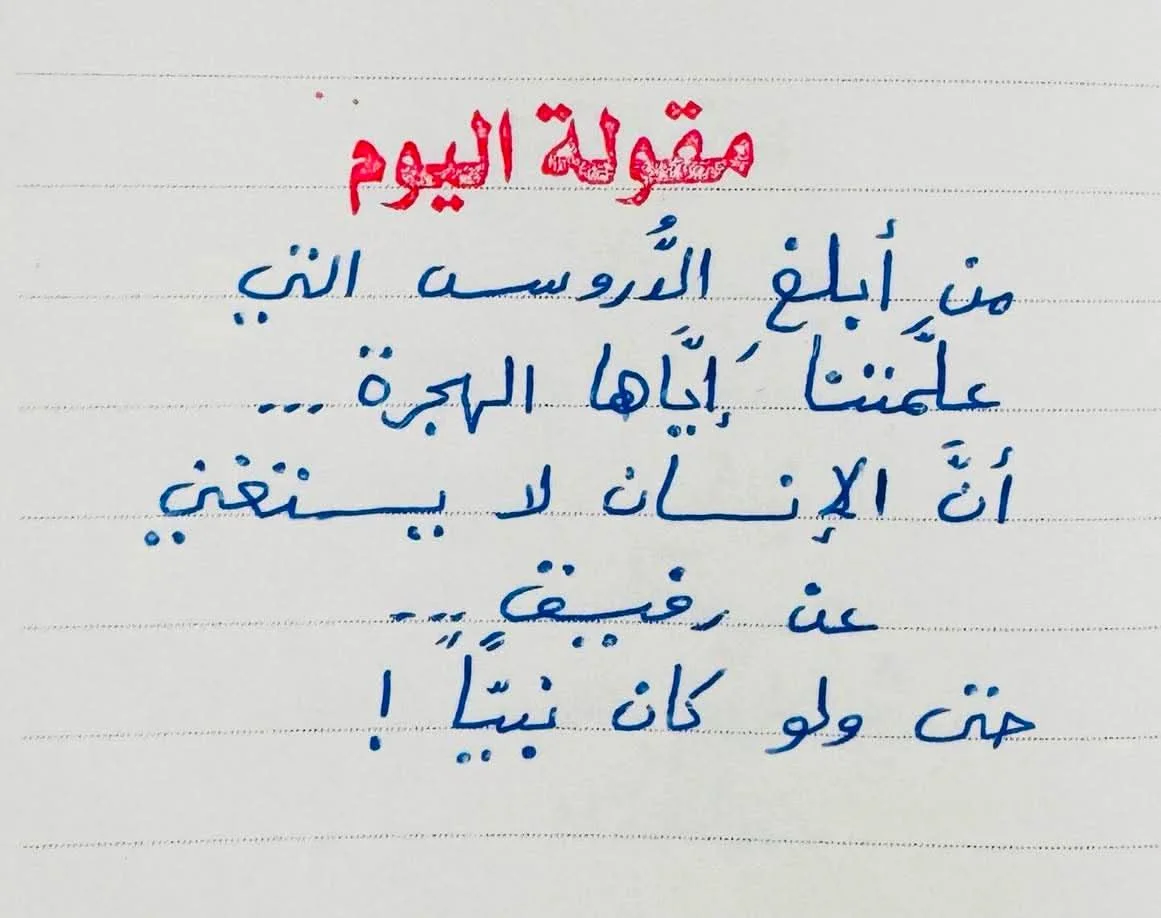 مقولة اليوم
من أبلغ الدُّروس التي
علَّمتنا إيَّاها الهجرة ...
أنَّ الإنسان لا يستغني
عن رفيق ...
حتى ولو كان نبيّاً !